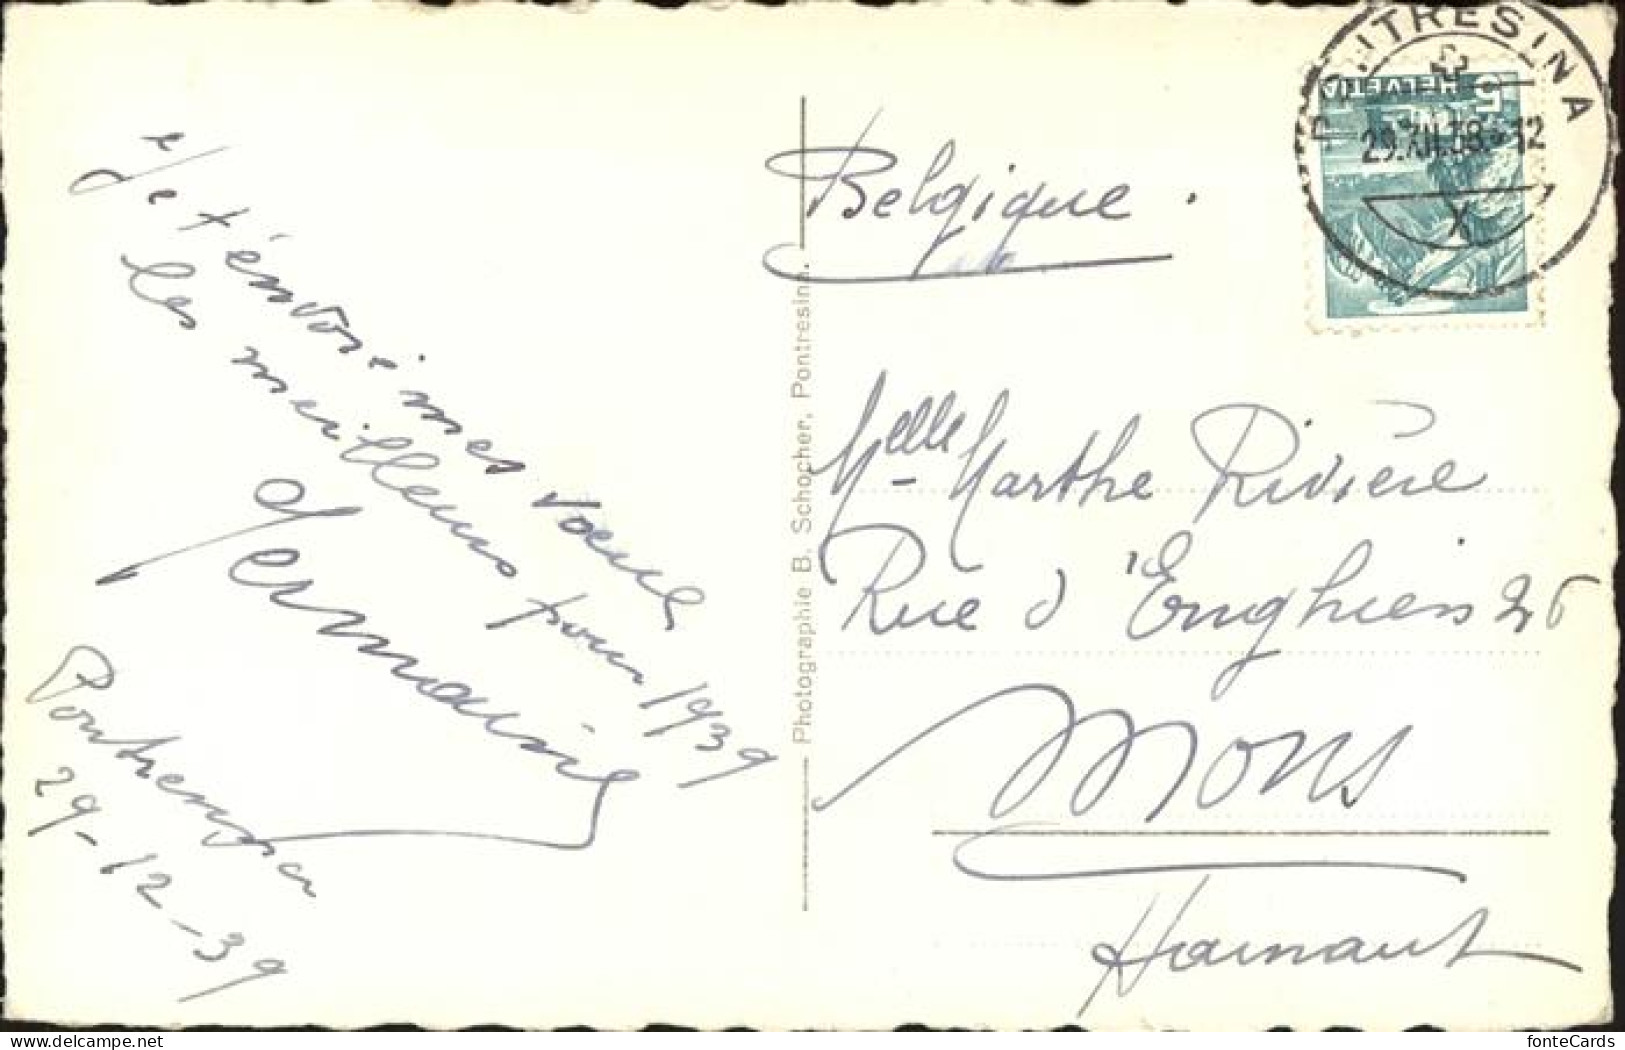 Je t'envoie mes vœux
les meilleurs pour 1939
Germaine
Pontresina
29-12-39
Photographie B. Schocher, Pontresina.
PONTRESINA
29.XII.38.-12
X
HELVETIA
5
Belgique.
Melle Marthe Rivière
Rue d'Enghien 26
Mons
Hainaut
fonteCards